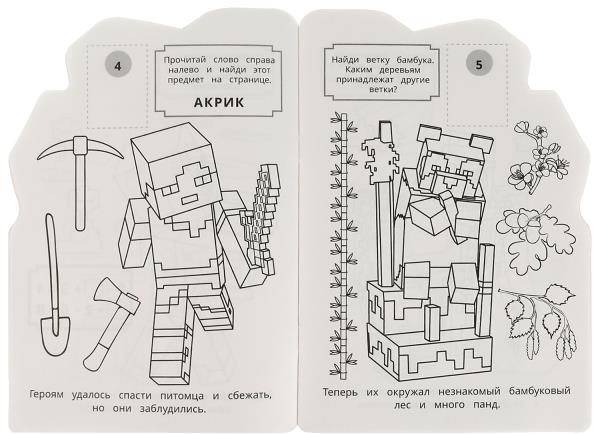 4
Прочитай слово справа
налево и найди этот
предмет на странице.
АКРИК
Героям удалось спасти питомца и сбежать,
но они заблудились.
Найди ветку бамбука.
Каким деревьям
принадлежат другие
ветки?
5
Теперь их окружал незнакомый бамбуковый
лес и много панд.